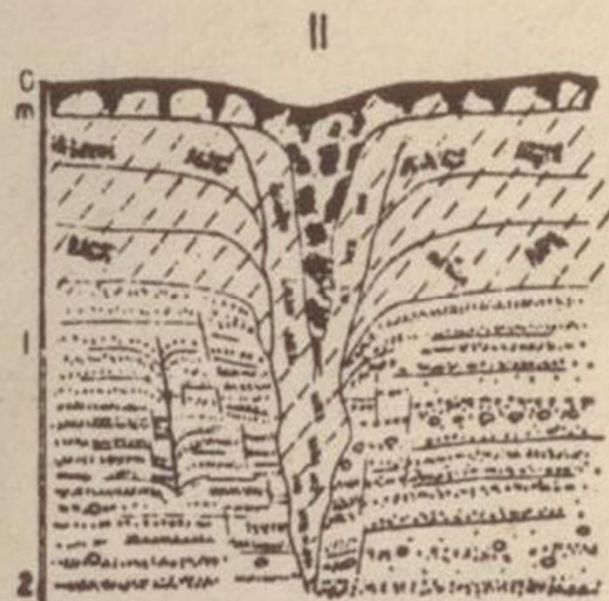 II
0
m
1
2